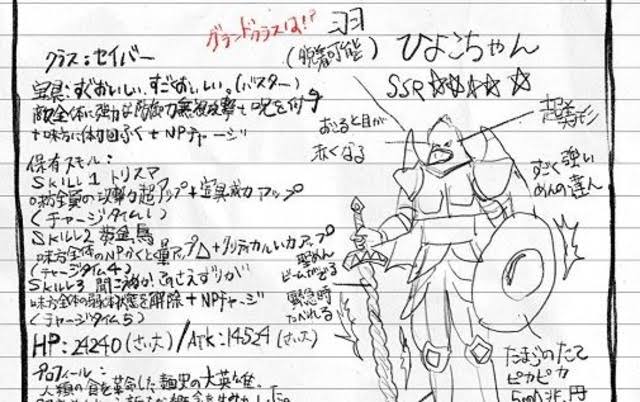 グランドクラスは!?
羽
(脱着可能)
ひよこちゃん
SSR☆☆☆☆☆
クラス:セイバー
宝具:すぐおいしい、すごくおいしい。(バスター)
敵全体に強力な防御力無視攻撃+呪を付与
+味方に体力回ふく+NPチャージ
保有スキル:
SKILL1 トリスマ
味方全員の攻撃力超アップ+宝具威力アップ
(チャージタイム1)
SKILL2 黄金鳥
味方全体のNPかくとく量アップ+クリティカルい力アップ
(チャージタイム4)
SKILL3 聞こ
味方全体の弱体状態を解除+NPチャージ
(チャージタイム5)
HP:24240(さい大)/Atk:14524(さい大)
プロフィール:
人類の食を革命した麺里の大英雄。
おこると目が
赤くなる
超美形
すごく強い
めんの達人
聖めん
ビームが出る
緊急時
たべれる
たまごのたて
ピカピカ
500兆円